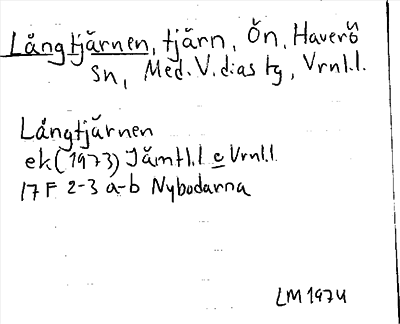 Långtjärnen, tjärn, Ön, Haverö
Sn, Med. V. dias tg, Vrnl.l.
Långtjärnen
ek (1973) Jämtl.l o Vrnl.l.
17 F 2-3 a-b Nybodarna
LM 1974